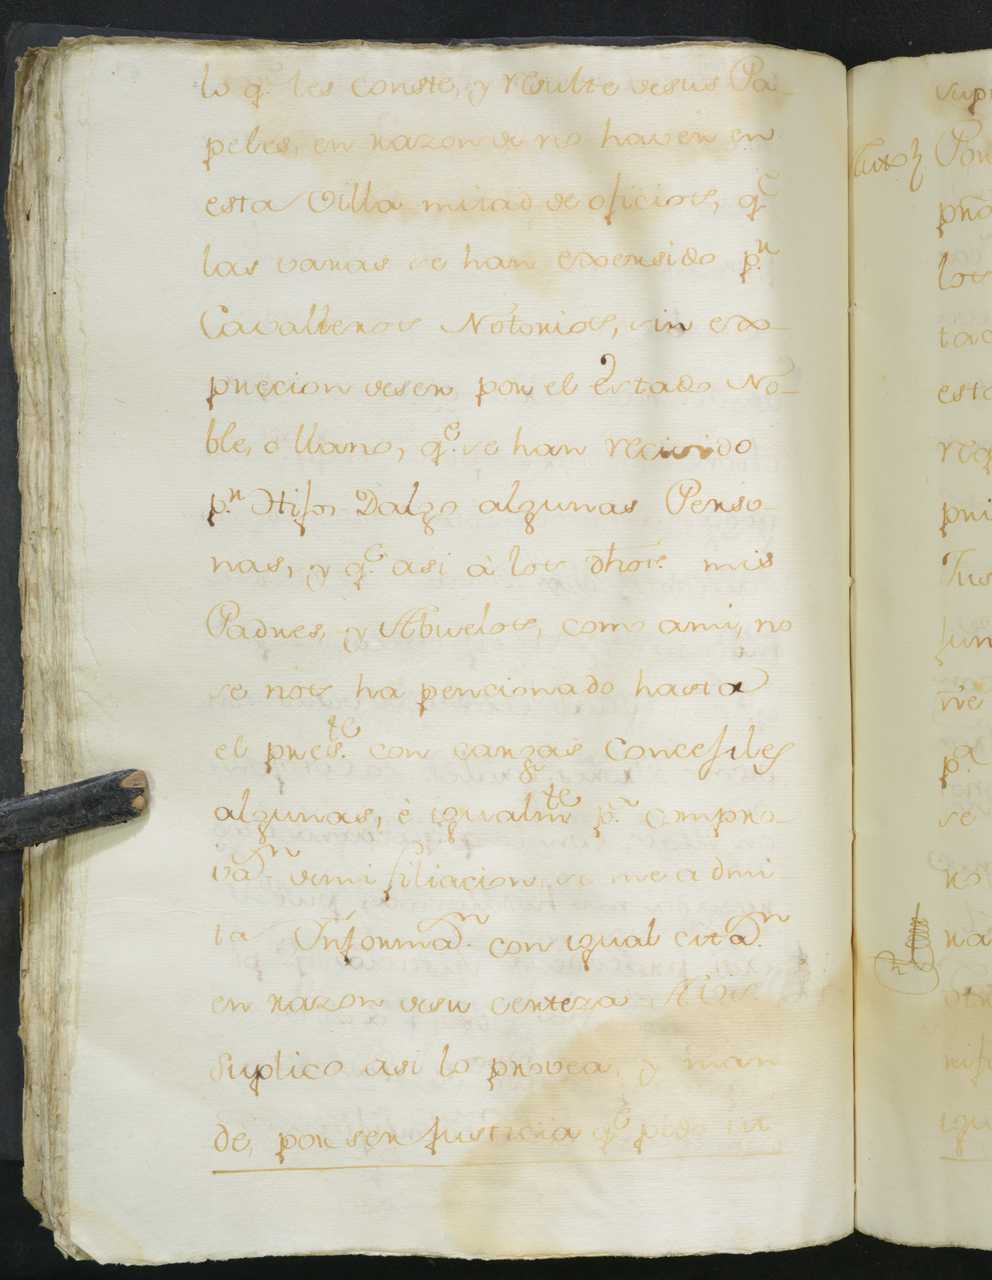 lo q.e les conste, y resulte desus Pa-
peles, en razon de no haver en
esta Villa mitad de oficios, q.e
las varas se han exersido p.r
Cavalleros Notorios, sin ex-
precion deser por el Estado No-
ble, o llano, q.e se han recivido
p.r Hijos Dalgo algunas Perso-
nas, y q.e asi à los dhos. mis
Padres, y Abuelos, como ami, no
se nos ha pencionado hasta
el pres.te con cargas Concejiles
algunas, è igualm.te p.a compro-
va.on demi filiacion, se me admi
ta Informa.on con igual cita.on
en razon desu certeza A Vm.
Suplico asi lo provea, y man
de, por ser Justicia q.e pido
Auto